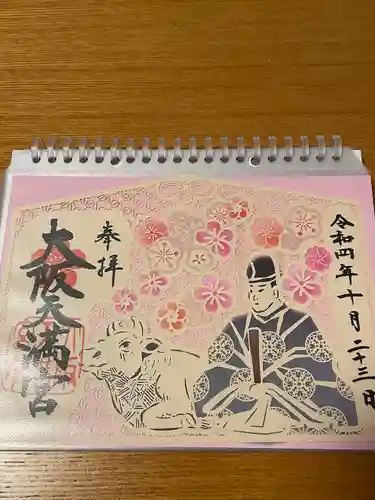 令和四年十月二十三日
奉拝
大阪天満宮